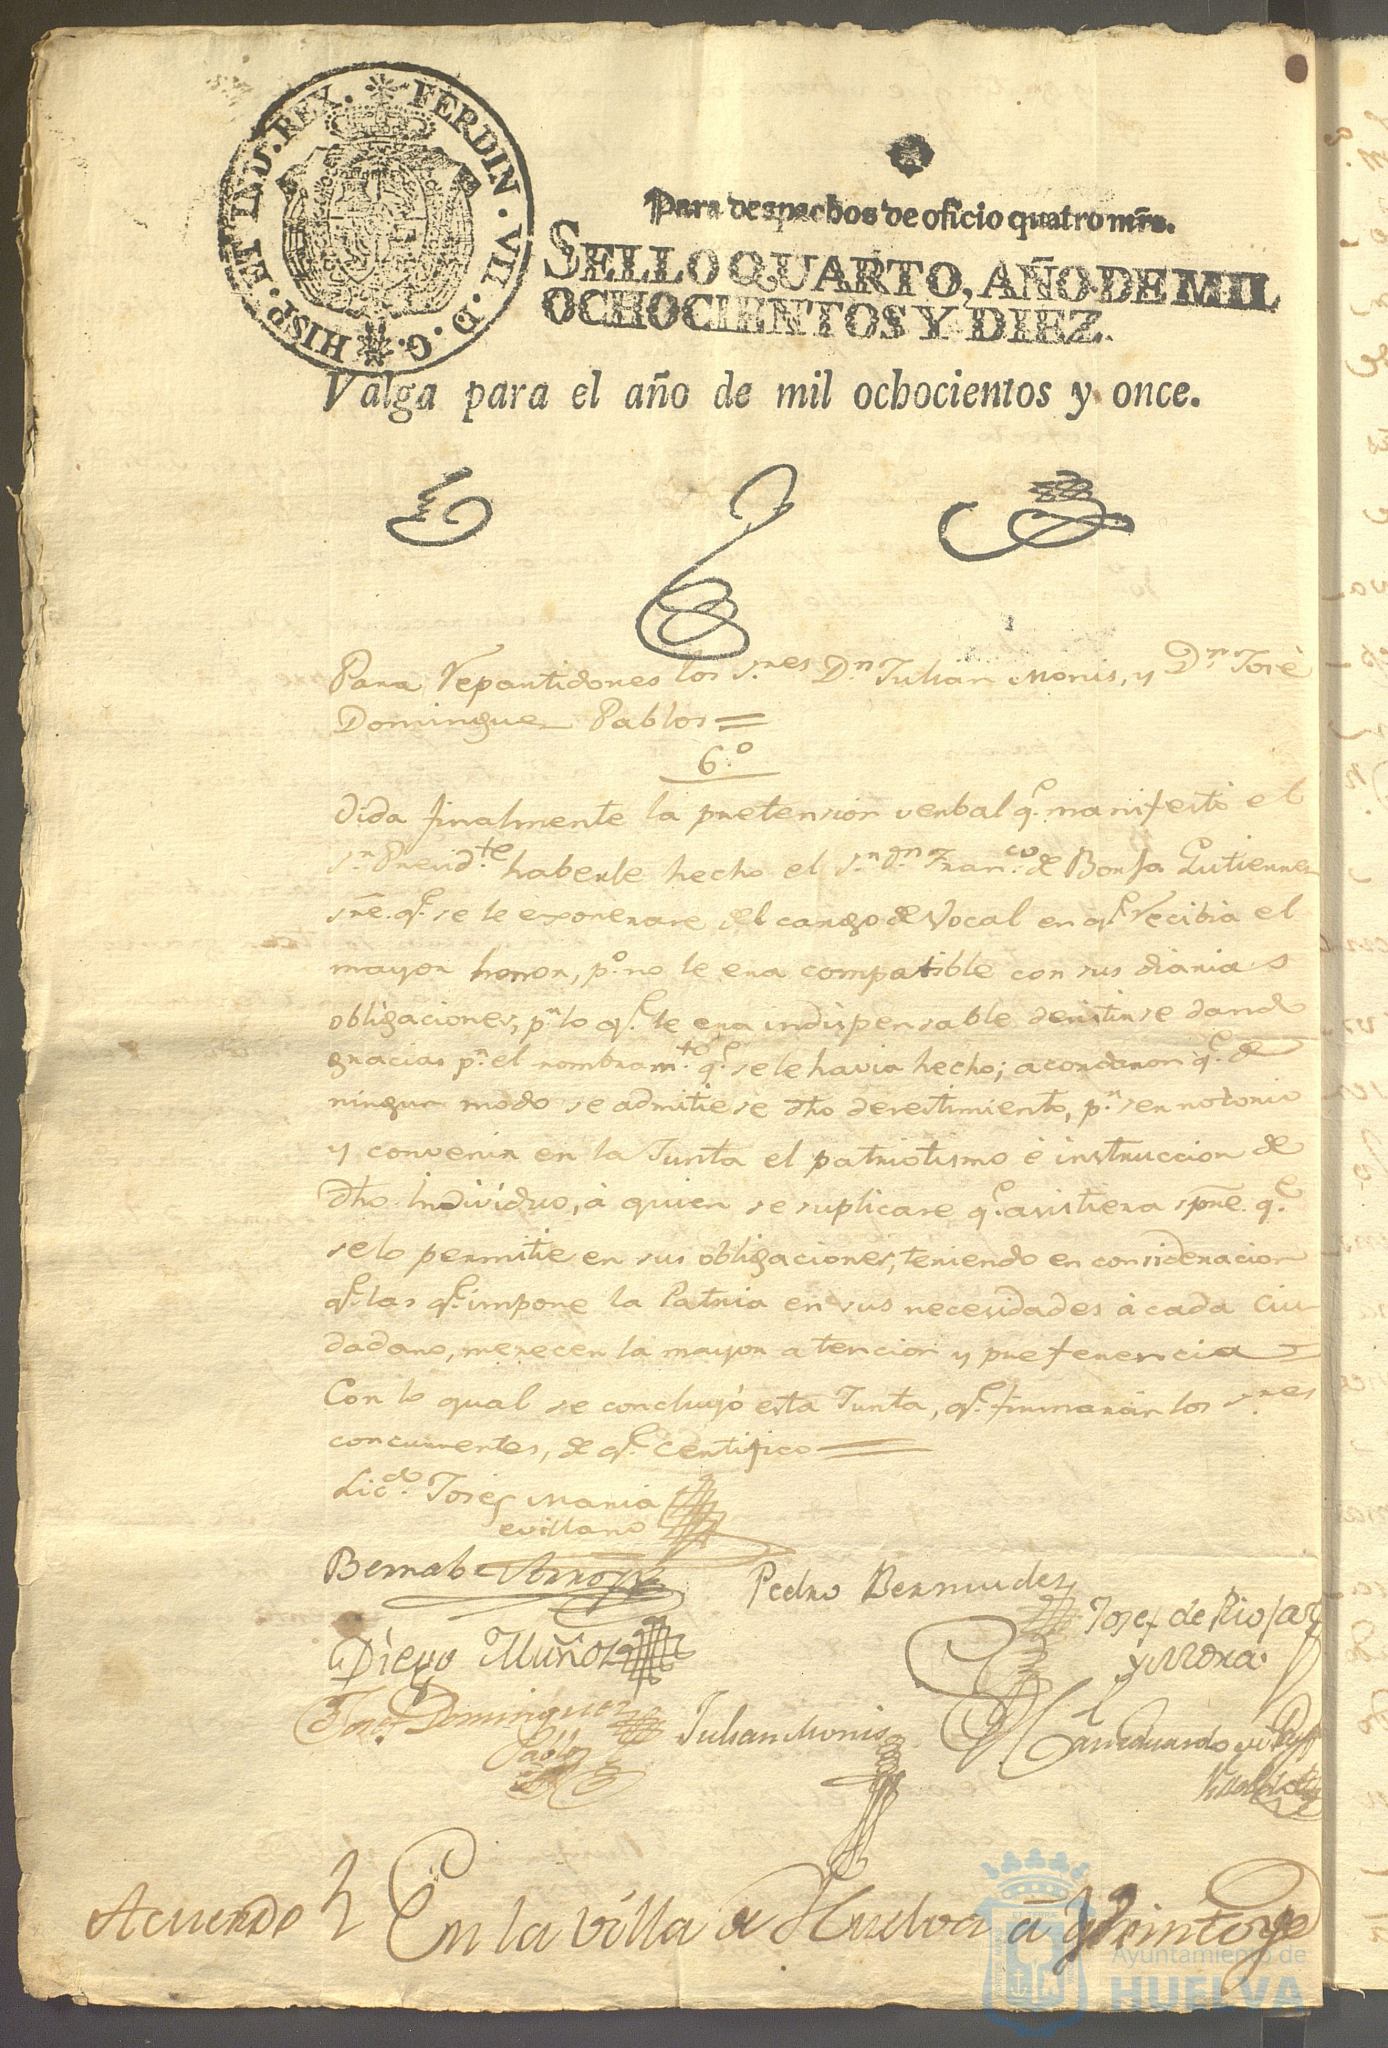 FERDIN. VII. D. G. HISP. ET IND. REX.
Para despachos de oficio quatro mrs.
SELLO QUARTO, AÑO DE MIL
OCHOCIENTOS Y DIEZ.
Valga para el año de mil ochocientos y once.
Para Repartidores los S.res D.n Julian Monis, y D.n José
Dominguez Pablos =
6.º
Oida finalmente la pretension verbal q.e manifestó el
S.r Presid.te haberle hecho el S.r D.n Fran.co de Borja Gutierrez
sre. q.e se le exonerare del cargo de Vocal en q.e recibia el
mayor honor, p.o no le era compatible con sus diarias
obligaciones, p.r lo q.e le era indispensable desistirse dando
gracias p.r el nombram.to q.e se le havia hecho; acordaron q.e de
ningun modo se admitiese dho desestimiento, p.r ser notorio
y convenir en la Junta el patriotismo é instruccion de
dho Individuo, á quien se suplicare q.e asistiera spre. q.e
se lo permitie en sus obligaciones, teniendo en consideracion
q.e las q.e impone la Patria en sus necesidades á cada Ciu-
dadano, merecen la mayor atencion y preferencia
Con lo qual se concluyó esta Junta, q.e firmarán los S.res
concurrentes, de q.e Certifico
Lic.do Josef Maria
evillano
Bernabe
Pedro Bermudez
Josef de Rioja
y Mora
Diego Muñoz
Josef Dominguez
Pablos
Julian Monis
Juan Eduardo
Acuerdo
En la villa de Huelva á Veinte
Ayuntamiento de
HUELVA